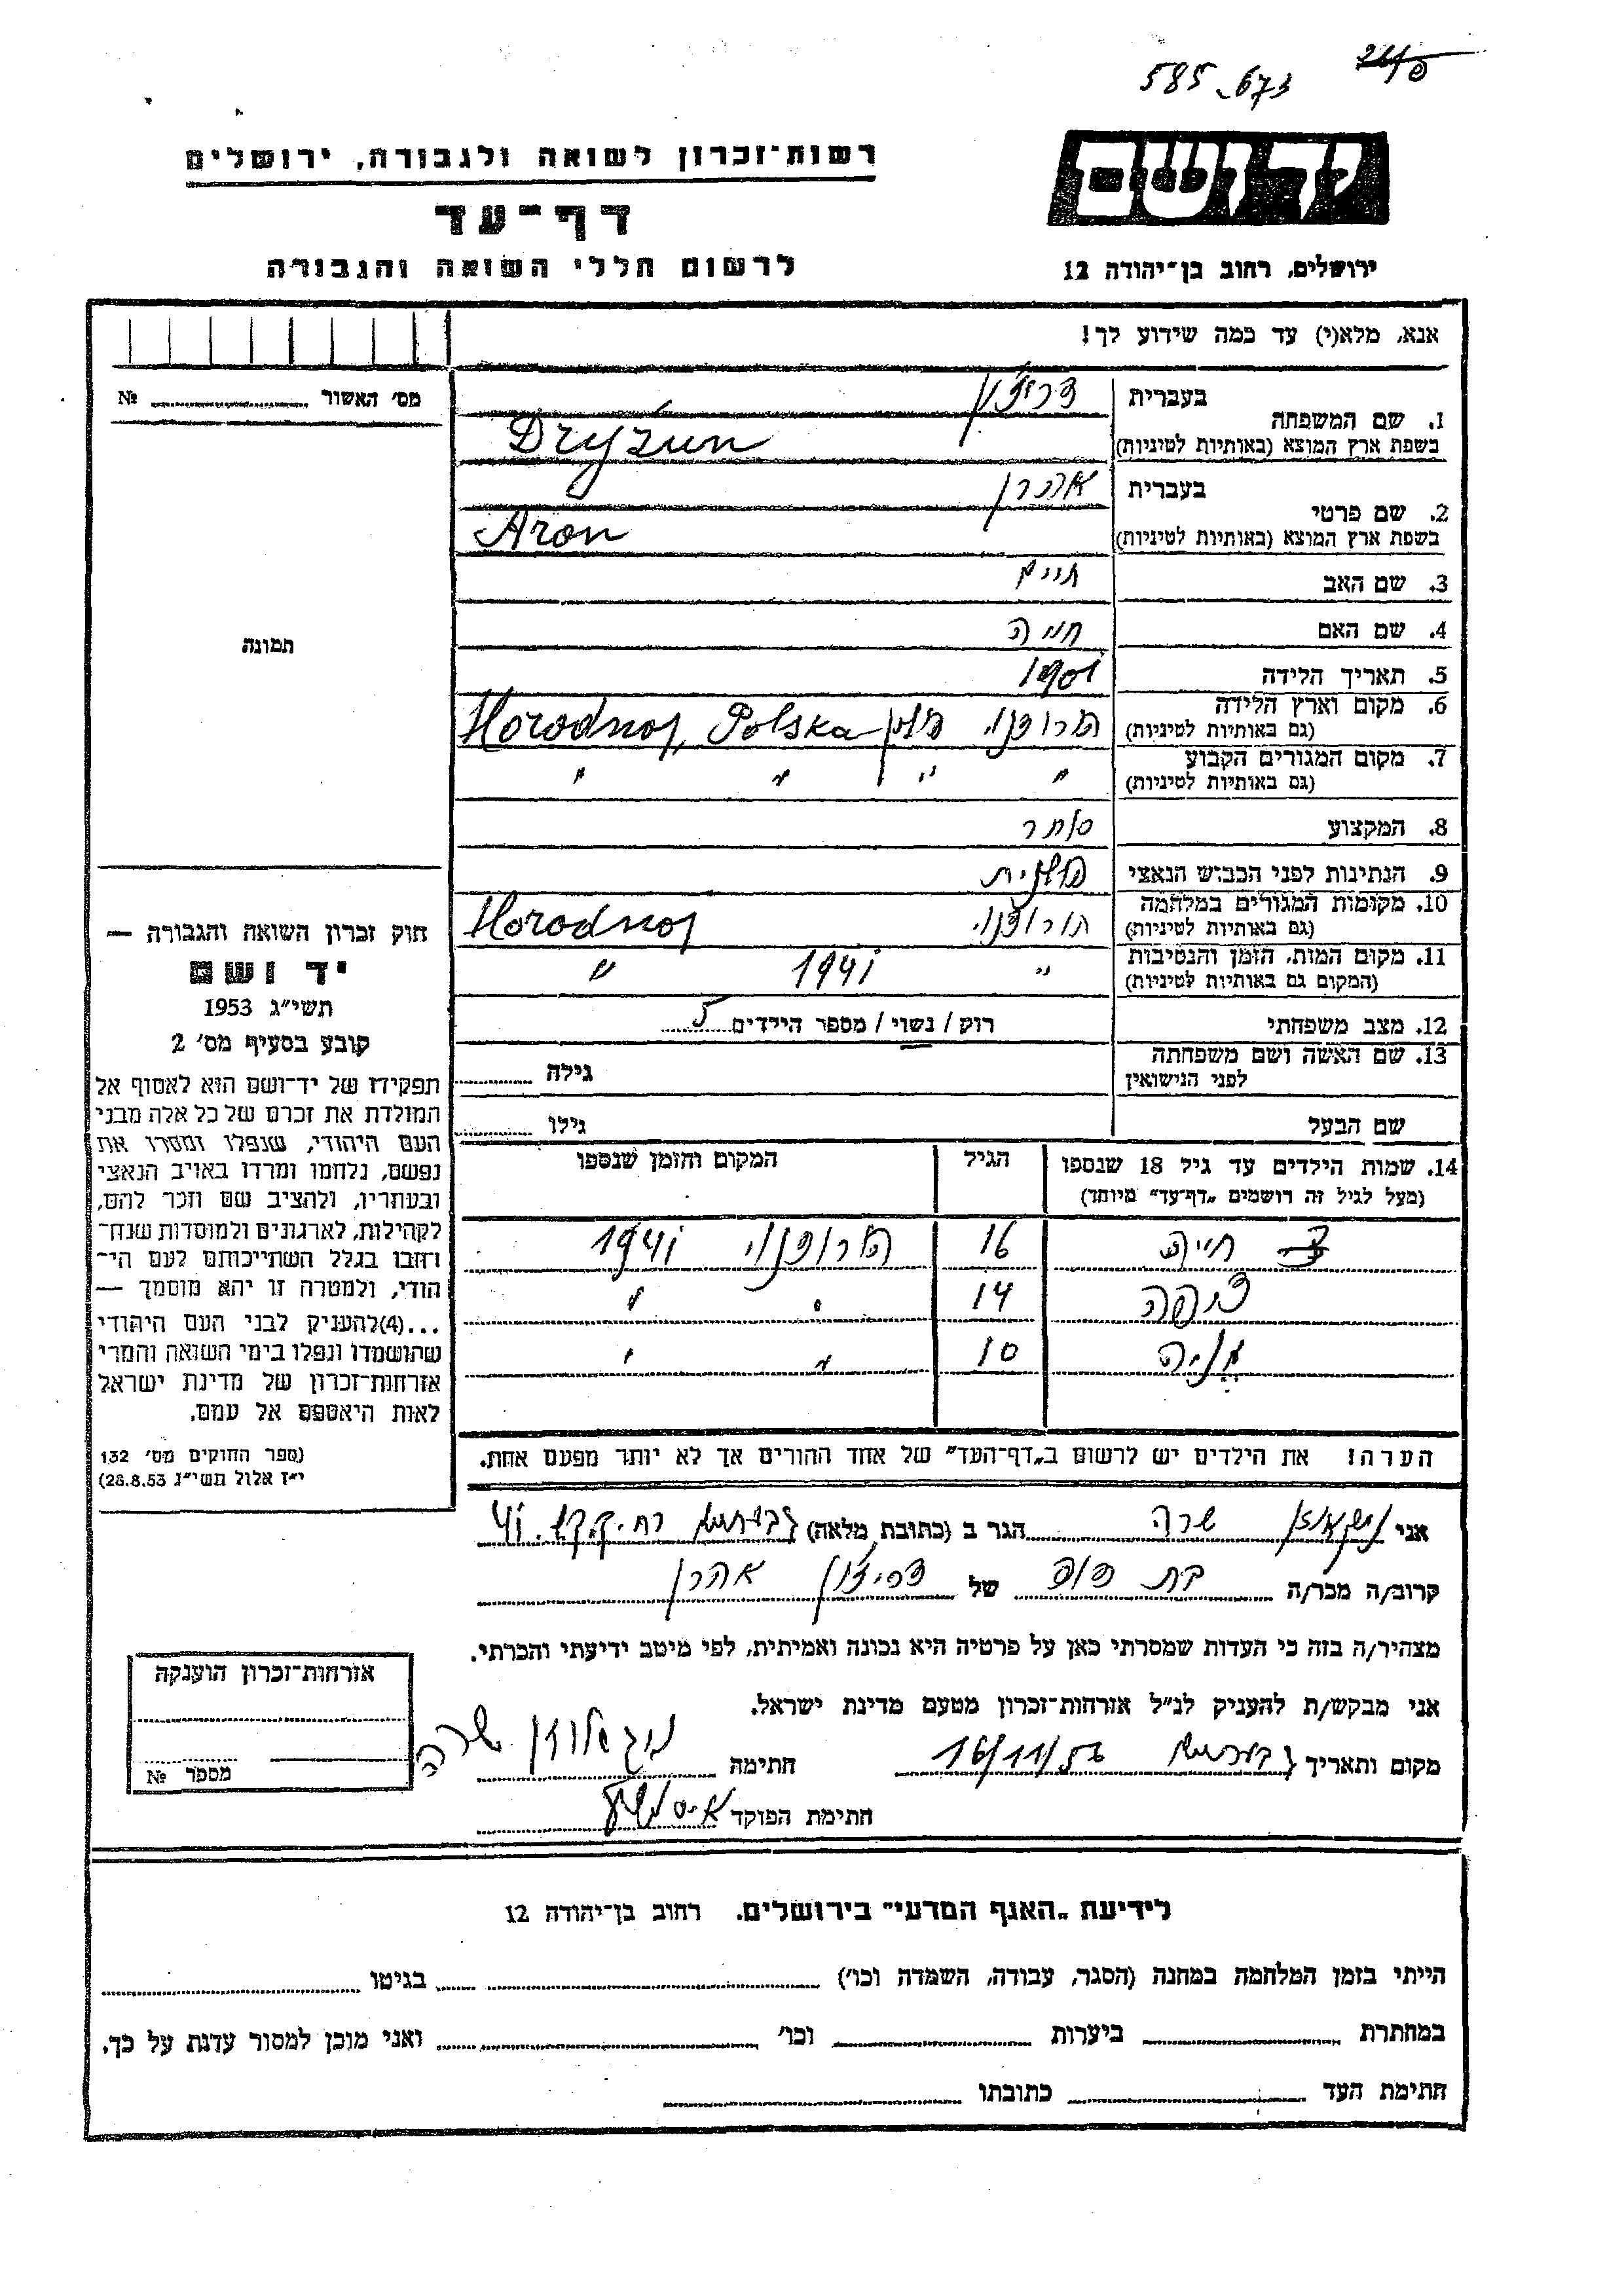 585-673
יד ושם
רשות־זכרון לשואה ולגבורה, ירושלים
דף־עד
לרשום חללי השואה והגבורה
ירושלים, רחוב בן־יהודה 12
אנא, מלא(י) עד כמה שידוע לך!
מס׳ האשור № 
1. שם המשפחה
בעברית
דריז׳ון
בשפת ארץ המוצא (באותיות לטיניות)
Dryżun
2. שם פרטי
בעברית
אהרן
בשפת ארץ המוצא (באותיות לטיניות)
Aron
3. שם האב חיים
4. שם האם חמה
תמונה
5. תאריך הלידה 1901
6. מקום וארץ הלידה
(גם באותיות לטיניות)
הורודנוי פולין Horodnoj, Polska
7. מקום המגורים הקבוע
(גם באותיות לטיניות)
" " " "
8. המקצוע סוחר
9. הנתינות לפני הכבוש הנאצי פולנית
10. מקומות המגורים במלחמה
(גם באותיות לטיניות)
הורודנוי Horodnoj
11. מקום המות, הזמן והנסיבות
(המקום גם באותיות לטיניות)
" 1941 "
12. מצב משפחתי רוק / נשוי / מספר הילדים 5
13. שם האשה ושם משפחתה
לפני הנישואין
גילה
שם הבעל גילו
14. שמות הילדים עד גיל 18 שנספו
(מעל לגיל זה רושמים „דף־עד" מיוחד)
הגיל
המקום והזמן שנספו
חייה 16 הורודנוי 1941
14 " "
10 " "
הערה! את הילדים יש לרשום ב„דף־העד" של אחד ההורים אך לא יותר מפעם אחת.
חוק זכרון השואה והגבורה —
יד ושם
תשי״ג 1953
קובע בסעיף מס׳ 2
תפקידו של יד־ושם הוא לאסוף אל
המולדת את זכרם של כל אלה מבני
העם היהודי, שנפלו ומסרו את
נפשם, נלחמו ומרדו באויב הנאצי
ובעוזריו, ולהציב שם וזכר להם,
לקהילות, לארגונים ולמוסדות שנח־
רחבו בגלל השתייכותם לעם הי־
הודי, ולמטרה זו יהא מוסמך —
...(4)להעניק לבני העם היהודי
שהושמדו ונפלו בימי השואה והמרי
אזרחות־זכרון של מדינת ישראל
לאות היאספם אל עמם.
(ספר החוקים מס׳ 132
י״ז אלול תשי״ג 28.8.53)
אני שרה הגר ב (כתובת מלאה) רח.
קרוב/ה מכר/ה בת דוד של דריז׳ון אהרן
מצהיר/ה בזה כי העדות שמסרתי כאן על פרטיה היא נכונה ואמיתית, לפי מיטב ידיעתי והכרתי.
אני מבקש/ת להעניק לנ״ל אזרחות־זכרון מטעם מדינת ישראל.
מקום ותאריך 16/11/56 חתימה שרה
חתימת הפוקד
אזרחות־זכרון הוענקה
מספר №
לידיעת „האגף המדעי" בירושלים. רחוב בן־יהודה 12
הייתי בזמן המלחמה במחנה (הסגר, עבודה, השמדה וכו׳) בגיטו
במחתרת ביערות וכו׳ ואני מוכן למסור עדות על כך.
חתימת העד כתובתו